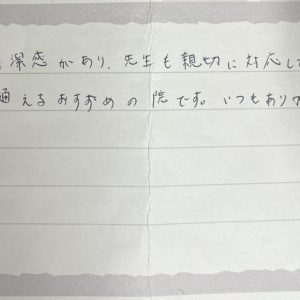 潔感があり、先生も親切に対応し
通えるおすすめの院です。いつもあり